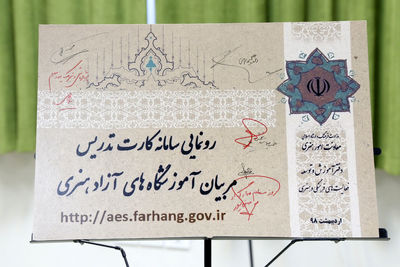 رونمایی سامانه کارت تدریس
مربیان آموزشگاه های آزاد هنری
http://aes.farhang.gov.ir
وزارت فرهنگ و ارشاد اسلامی
معاونت امور هنری
دفتر آموزش و توسعه
فعالیت های فرهنگی و هنری
اردیبهشت ۹۸